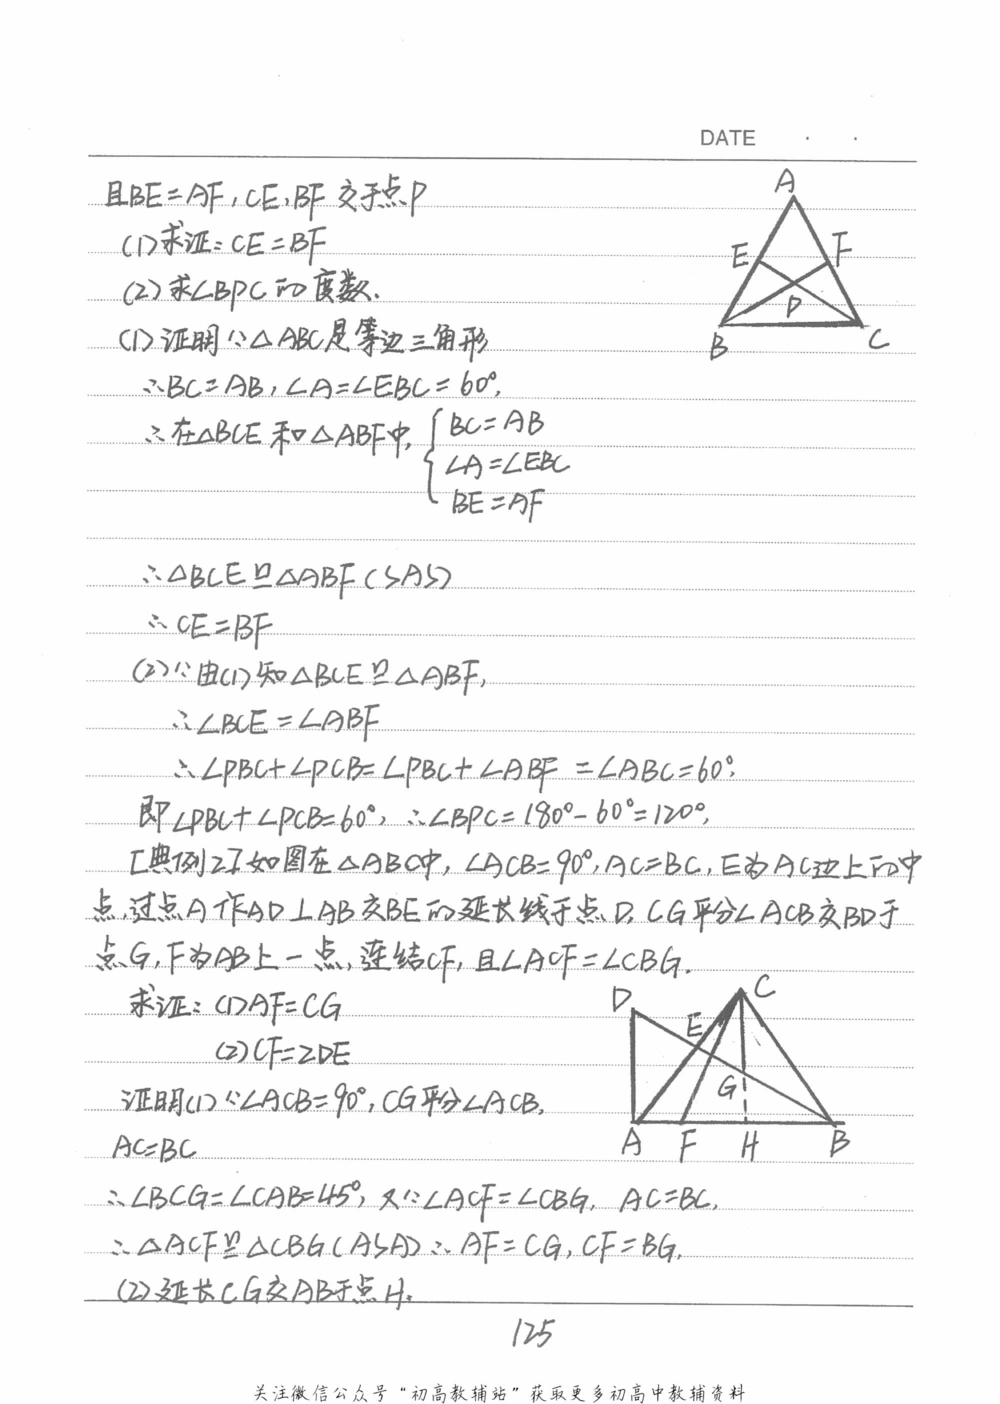 DATE · ·
且BE=AF,CE、BF 交于点P
(1)求证:CE=BF
(2)求∠BPC的度数.
(1)证明∵△ABC是等边三角形
∴BC=AB,∠A=∠EBC=60°,
∴在△BCE和△ABF中,
BC=AB
∠A=∠EBC
BE=AF
∴△BCE≌△ABF(SAS)
∴CE=BF
(2)∵由(1)知△BCE≌△ABF,
∴∠BCE=∠ABF
∴∠PBC+∠PCB=∠PBC+∠ABF=∠ABC=60°,
即∠PBC+∠PCB=60°,∴∠BPC=180°-60°=120°,
[典例2]如图在△ABC中,∠ACB=90°,AC=BC,E为AC边上的中
点,过点A作AD⊥AB交BE的延长线于点D,CG平分∠ACB交BD于
点G,F为AB上一点,连结CF,且∠ACF=∠CBG.
求证:(1)AF=CG
(2)CF=2DE
证明(1)∵∠ACB=90°,CG平分∠ACB,
AC=BC
∴∠BCG=∠CAB=45°,又∵∠ACF=∠CBG, AC=BC,
∴△ACF≌△CBG(ASA)∴AF=CG,CF=BG,
(2)延长CG交AB于点H.
A
E F
P
B C
D C
E
G
A F H B
125
关注微信公众号“初高教辅站”获取更多初高中教辅资料